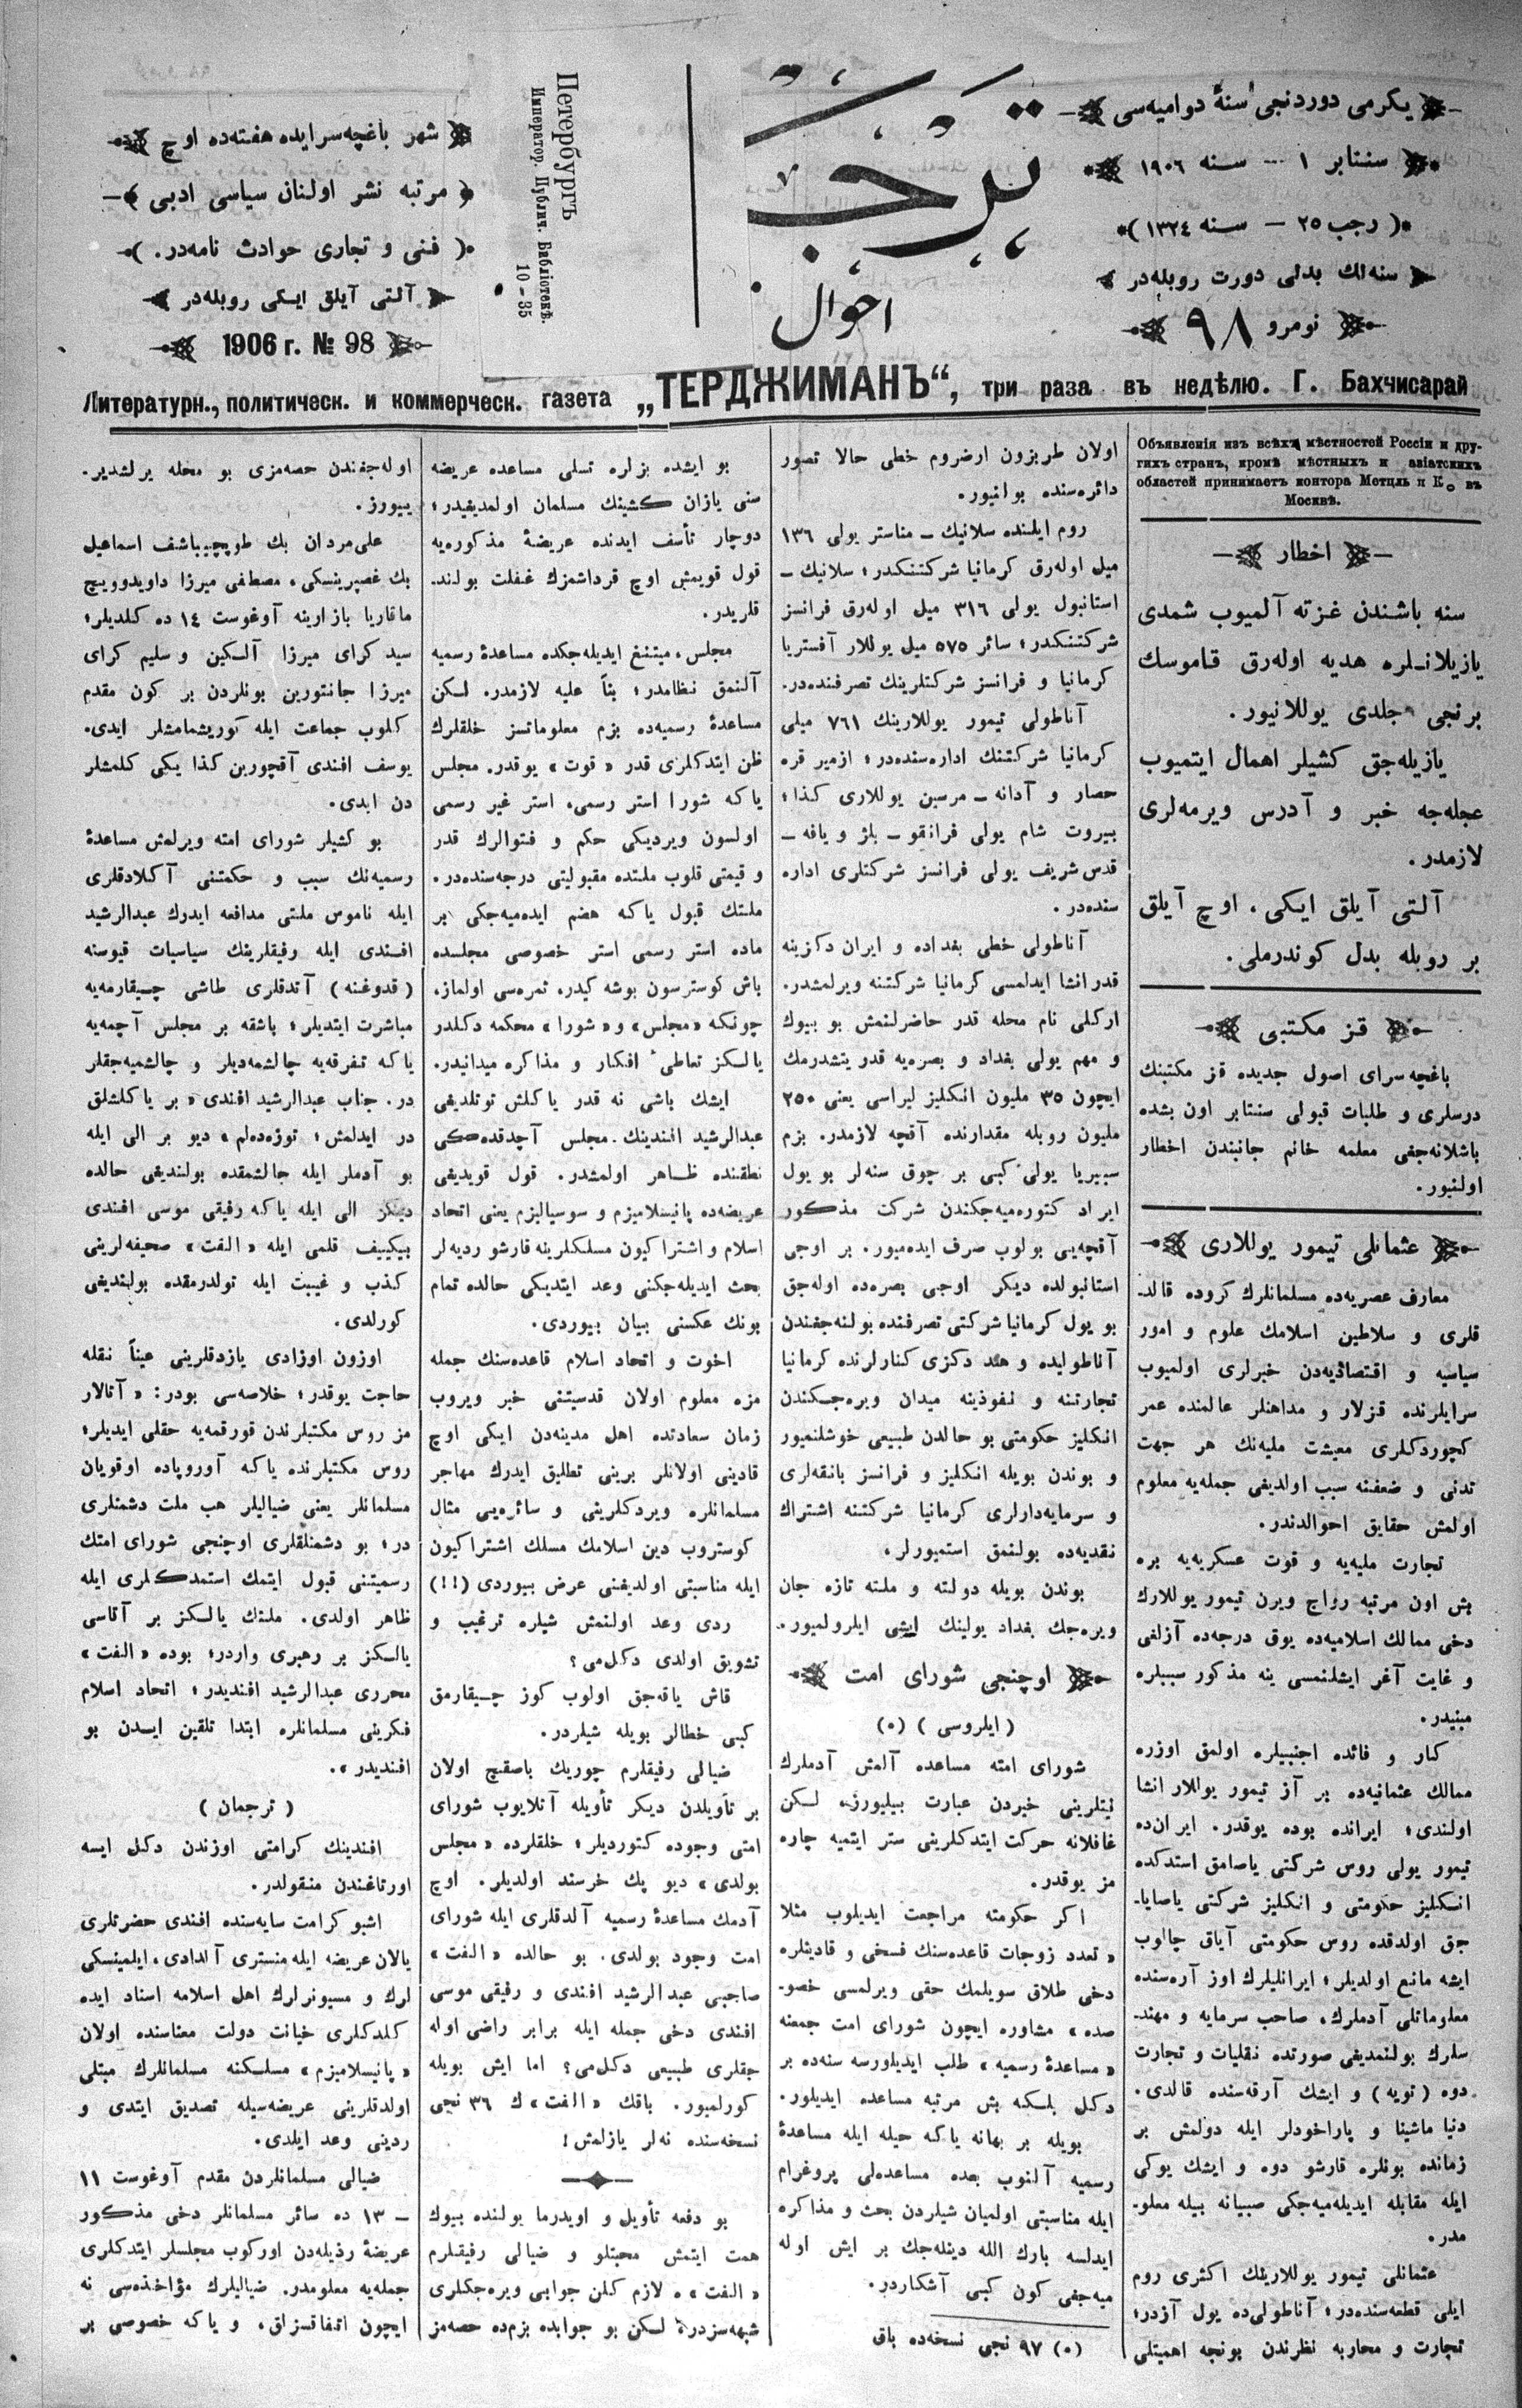 يكرمى دوردنجى سنۀ دواميه‌سى
سنتابر ١ — سنه ١٩٠٦
(رجب ٢٥ — سنه ١٣٢٤)
سنه‌لك بدلى دورت روبله‌در
نومرو ٩٨
ترجمان
احوال
Петербургъ
Император. Публич. Библіотекѣ.
10 - 35
شهر باغچه‌سرايده هفته‌ده اوچ
مرتبه نشر اولنان سياسى ادبى
فنى و تجارى حوادث نامه‌در.
آلتى آيلق ايكى روبله‌در
1906 г. № 98
Литературн., политическ. и коммерческ. газета „ТЕРДЖИМАНЪ“, три раза въ недѣлю. Г. Бахчисарай
Объявленія изъ всѣхъ мѣстностей Россіи и дру-
гихъ странъ, кромѣ мѣстныхъ и азіатскихъ
областей принимаетъ контора Метцль и К° въ
Москвѣ.
اخطار
سنه باشندن غزته آلميوب شمدى
يازيلانلره هديه اوله‌رق قاموسك
برنجى جلدى يوللانيور.
يازيله‌جق كشيلر اهمال ايتميوب
عجله‌جه خبر و آدرس ويرمه‌لرى
لازمدر.
آلتى آيلق ايكى، اوچ آيلق
بر روبله بدل كوندرملى.
قز مكتبى
باغچه‌سراى اصول جديده قز مكتبنك
درسلرى و طلبات قبولى سنتابر اون بشده
باشلانه‌جغى معلمه خانم جانبندن اخطار
اولنيور.
عثمانلى تيمور يوللارى
معارف عصريه‌ده مسلمانلرك كروده قالد-
قلرى و سلاطين اسلامك علوم و امور
سياسيه و اقتصاديه‌دن خبرلرى اولميوب
سرايلرنده قزلار و مداهنلر عالمنده عمر
كچوردكلرى معيشت مليه‌نك هر جهت
تدنى و ضعفنه سبب اولديغى جمله‌يه معلوم
اولمش حقايق احوالدندر.
تجارت مليه‌يه و قوت عسكريه‌يه بره
بش اون مرتبه رواج ويرن تيمور يوللارك
دخى ممالك اسلاميه‌ده يوق درجه‌ده آزلغى
و غايت آغر ايشلنمسى ينه مذكور سببلره
مبنيدر.
كار و فائده اجنبيلره اولمق اوزره
ممالك عثمانيه‌ده بر آز تيمور يوللار انشا
اولندى؛ ايرانده بوده يوقدر. ايرانده
تيمور يولى روس شركتى ياصامق استدكده
انكليز حكومتى و انكليز شركتى ياصايا-
جق اولدقده روس حكومتى آياق چالوب
ايشه مانع اولديلر؛ ايرانليلرك اوز آره‌سنده
معلوماتلى آدملرك، صاحب سرمايه و مهند-
سلرك بولنمديغى صورتده نقليات و تجارت
دوه (تويه) و ايشك آرقه‌سنده قالدى.
دنيا ماشينا و پاراخودلر ايله دولمش بر
زمانده بونلره قارشو دوه و ايشك يوكى
ايله مقابله ايديله‌ميه‌جكى صبيانه بيله معلو-
مدر.
عثمانلى تيمور يوللارينك اكثرى روم
ايلى قطعه‌سنده‌در؛ آناطولى‌ده يول آزدر؛
تجارت و محاربه نظرندن بونجه اهميتلى
اولان طربزون ارضروم خطى حالا تصور
دائره‌سنده بولنيور.
روم ايلنده سلانيك — مناستر يولى ١٣٦
ميل اوله‌رق كرمانيا شركتنكدر؛ سلانيك —
استانبول يولى ٣١٦ ميل اوله‌رق فرانسز
شركتنكدر؛ سائر ٥٧٥ ميل يوللار آفستريا
كرمانيا و فرانسز شركتلرينك تصرفنده‌در.
آناطولى تيمور يوللارينك ٧٦١ ميلى
كرمانيا شركتنك اداره‌سنده‌در؛ ازمير قره
حصار و آدانه — مرسين يوللارى كذا؛
بيروت شام يولى فرانقو — بلژ و يافه —
قدس شريف يولى فرانسز شركتلرى اداره
سنده‌در.
آناطولى خطى بغداده و ايران دكزينه
قدر انشا ايدلمسى كرمانيا شركتنه ويرلمشدر.
اركلى نام محله قدر حاضرلنمش بو بيوك
و مهم يولى بغداد و بصره‌يه قدر يتشدرمك
ايچون ٣٥ مليون انكليز ليراسى يعنى ٢٥٠
مليون روبله مقدارنده آقچه لازمدر. بزم
سيبريا يولى كبى بر چوق سنه‌لر بو يول
ايراد كتوره‌ميه‌جكندن شركت مذكور
آقچه‌يى بولوب صرف ايده‌ميور. بر اوجى
استانبولده ديكر اوجى بصره‌ده اوله‌جق
بو يول كرمانيا شركتى تصرفنده بولنه‌جغندن
آناطوليده و هند دكزى كنارلرنده كرمانيا
تجارتنه و نفوذينه ميدان ويره‌جكندن
انكليز حكومتى بو حالدن طبيعى خوشلنميور
و بوندن بويله انكليز و فرانسز بانقه‌لرى
و سرمايه‌دارلرى كرمانيا شركتنه اشتراك
نقديه‌ده بولنمق استميورلر.
بوندن بويله دولته و ملته تازه جان
ويره‌جك بغداد يولينك ايشى ايلرولميور.
اوچنجى شوراى امت
(ايلروسى) (٥)
شوراى امته مساعده آلمش آدملرك
نيتلرينى خبردن عبارت بيليورز. لكن
غافلانه حركت ايتدكلرينى ستر ايتميه چاره
مز يوقدر.
اكر حكومته مراجعت ايديلوب مثلا
«تعدد زوجات قاعده‌سنك فسخى و قادينلره
دخى طلاق سويلمك حقى ويرلمسى خصو-
صده» مشاوره ايچون شوراى امت جمعنه
«مساعدۀ رسميه» طلب ايديلورسه سنه‌ده بر
دكل بلكه بش مرتبه مساعده ايديلور.
بويله بر بهانه ياكه حيله ايله مساعدۀ
رسميه آلنوب بعده مساعده‌لى پروغرام
ايله مناسبتى اولميان شيلردن بحث و مذاكره
ايدلسه بارك الله دينله‌جك بر ايش اوله
ميه‌جغى كون كبى آشكاردر.
(٥) ٩٧ نجى نسخه‌ده باق
بو ايشده بزلره تسلى مساعده عريضه
سنى يازان كشينك مسلمان اولمديغيدر؛
دوچار تأسف ايدنده عريضۀ مذكوره‌يه
قول قويمش اوچ قرداشمزك غفلت بولند.
قلريدر.
مجلس، ميتنغ ايديله‌جكده مساعدۀ رسميه
آلنمق نظامدر؛ بناً عليه لازمدر. لكن
مساعدۀ رسميه‌ده بزم معلوماتسز خلقلرك
ظن ايتدكلرى قدر «قوت» يوقدر. مجلس
ياكه شورا استر رسمى، استر غير رسمى
اولسون ويرديكى حكم و فتوالرك قدر
و قيمتى قلوب ملتده مقبوليتى درجه‌سنده‌در.
ملتك قبول ياكه هضم ايده‌ميه‌جكى بر
ماده استر رسمى استر خصوصى مجلسده
باش كوسترسون بوشه كيدر، ثمره‌سى اولماز.
چونكه «مجلس» و «شورا» محكمه دكلدر
يالكز تعاطئ افكار و مذاكره ميدانيدر.
ايشك باشى نه قدر ياكلش توتلديغى
عبدالرشيد افندينك مجلس آچدقده‌كى
نطقنده ظاهر اولمشدر. قول قويديغى
عريضه‌ده پانيسلاميزم و سوسياليزم يعنى اتحاد
اسلام و اشتراكيون مسلكلرينه قارشو رديه‌لر
بحث ايديله‌جكنى وعد ايتديكى حالده تمام
بونك عكسنى بيان بيوردى.
اخوت و اتحاد اسلام قاعده‌سنك جمله
مزه معلوم اولان قدسيتنى خبر ويروب
زمان سعادتده اهل مدينه‌دن ايكى اوچ
قادينى اولانلر برينى تطليق ايدرك مهاجر
مسلمانلره ويردكلرينى و سائره‌يى مثال
كوستروب دين اسلامك مسلك اشتراكيون
ايله مناسبتى اولديغنى عرض بيوردى (!!)
ردى وعد اولنمش شيلره ترغيب و
تشويق اولدى دكل‌مى؟
قاش ياقه‌جق اولوب كوز چيقارمق
كبى خطالر بويله شيلردر.
ضيالى رفيقلرم چوريك باصقچ اولان
بر تأويلدن ديكر تأويله آتلايوب شوراى
امتى وجوده كتورديلر؛ خلقلرده «مجلس
بولدى» ديو پك خرسند اولديلر. اوچ
آدمك مساعدۀ رسميه آلدقلرى ايله شوراى
امت وجود بولدى. بو حالده «الفت»
صاحبى عبدالرشيد افندى و رفيقى موسى
افندى دخى جمله ايله برابر راضى اوله
جقلرى طبيعى دكل‌مى؟ اما ايش بويله
كورلميور. باقك «الفت» ك ٣٦ نجى
نسخه‌سنده نه‌لر يازلمش!
بو دفعه تأويل و اويدرما يولنده بيوك
همت ايتمش محبتلو و ضيالى رفيقلرم
«الفت» ه لازم كلن جوابى ويره‌جكلرى
شبهه‌سزدر؛ لكن بو جوابده بزم‌ده حصه‌مز
اوله‌جغندن حصه‌مزى بو محله يرلشدير.
ييورز.
على‌مردان بك طوپچيباشف اسماعيل
بك غصپرينسكى، مصطفى ميرزا داويدوويچ
ماقاريا بازارينه آوغوست ١٤ ده كلديلر؛
سيد كراى ميرزا آلكين و سليم كراى
ميرزا جانتورين بونلردن بر كون مقدم
كلوب جماعت ايله كوريشمامشلر ايدى.
يوسف افندى آقچورين كذا يكى كلمشلر
دن ايدى.
بو كشيلر شوراى امته ويرلمش مساعدۀ
رسميه‌نك سبب و حكمتنى آكلادقلرى
ايله ناموس ملتى مدافعه ايدرك عبدالرشيد
افندى ايله رفيقلرينك سياسيات قيوسنه
(قدوغنه) آتدقلرى طاشى چيقارمه‌يه
مباشرت ايتديلر؛ باشقه بر مجلس آچمه‌يه
ياكه تفرقه‌يه چالشمه‌ديلر و چالشميه‌جقلر
در. جناب عبدالرشيد افندى «بر ياكلشلق
در ايدلمش؛ توزه‌ده‌لم» ديو بر الى ايله
بو آدملر ايله چالشمقده بولنديغى حالده
ديكر الى ايله ياكه رفيقى موسى افندى
بيكييف قلمى ايله «الفت» صحيفه‌لرينى
كذب و غيبت ايله تولدرمقده بولنديغى
كورلدى.
اوزون اوزادى يازدقلرينى عيناً نقله
حاجت يوقدر؛ خلاصه‌سى بودر: «آتالار
مز روس مكتبلرندن قورقمه‌يه حقلى ايديلر؛
روس مكتبلرنده ياكه آوروپاده اوقويان
مسلمانلر يعنى ضياليلر هب ملت دشمنلرى
در؛ بو دشمنلقلرى اوچنجى شوراى امتك
رسميتنى قبول ايتمك استمدكلرى ايله
ظاهر اولدى. ملتك يالكز بر آتاسى
يالكز بر رهبرى واردر؛ بوده «الفت»
محررى عبدالرشيد افنديدر؛ اتحاد اسلام
فكرينى مسلمانلره ابتدا تلقين ايدن بو
افنديدر».
(ترجمان)
افندينك كرامتى اوزندن دكل ايسه
اورتاغندن منقولدر.
اشبو كرامت سايه‌سنده افندى حضرتلرى
يالان عريضه ايله منسترى آلدادى، ايلمينسكى
لرك و مسيونرلرك اهل اسلامه اسناد ايده
كلدكلرى خيانت دولت معناسنده اولان
«پانيسلاميزم» مسلكنه مسلمانلرك مبتلى
اولدقلرينى عريضه‌سيله تصديق ايتدى و
ردينى وعد ايلدى.
ضيالى مسلمانلردن مقدم آوغوست ١١
— ١٣ ده سائر مسلمانلر دخى مذكور
عريضۀ رذيله‌دن اوركوب مجلسلر ايتدكلرى
جمله‌يه معلومدر. ضياليلرك مؤاخذه‌سى نه
ايچون اتفاقسزاق، و ياكه خصوصى بر